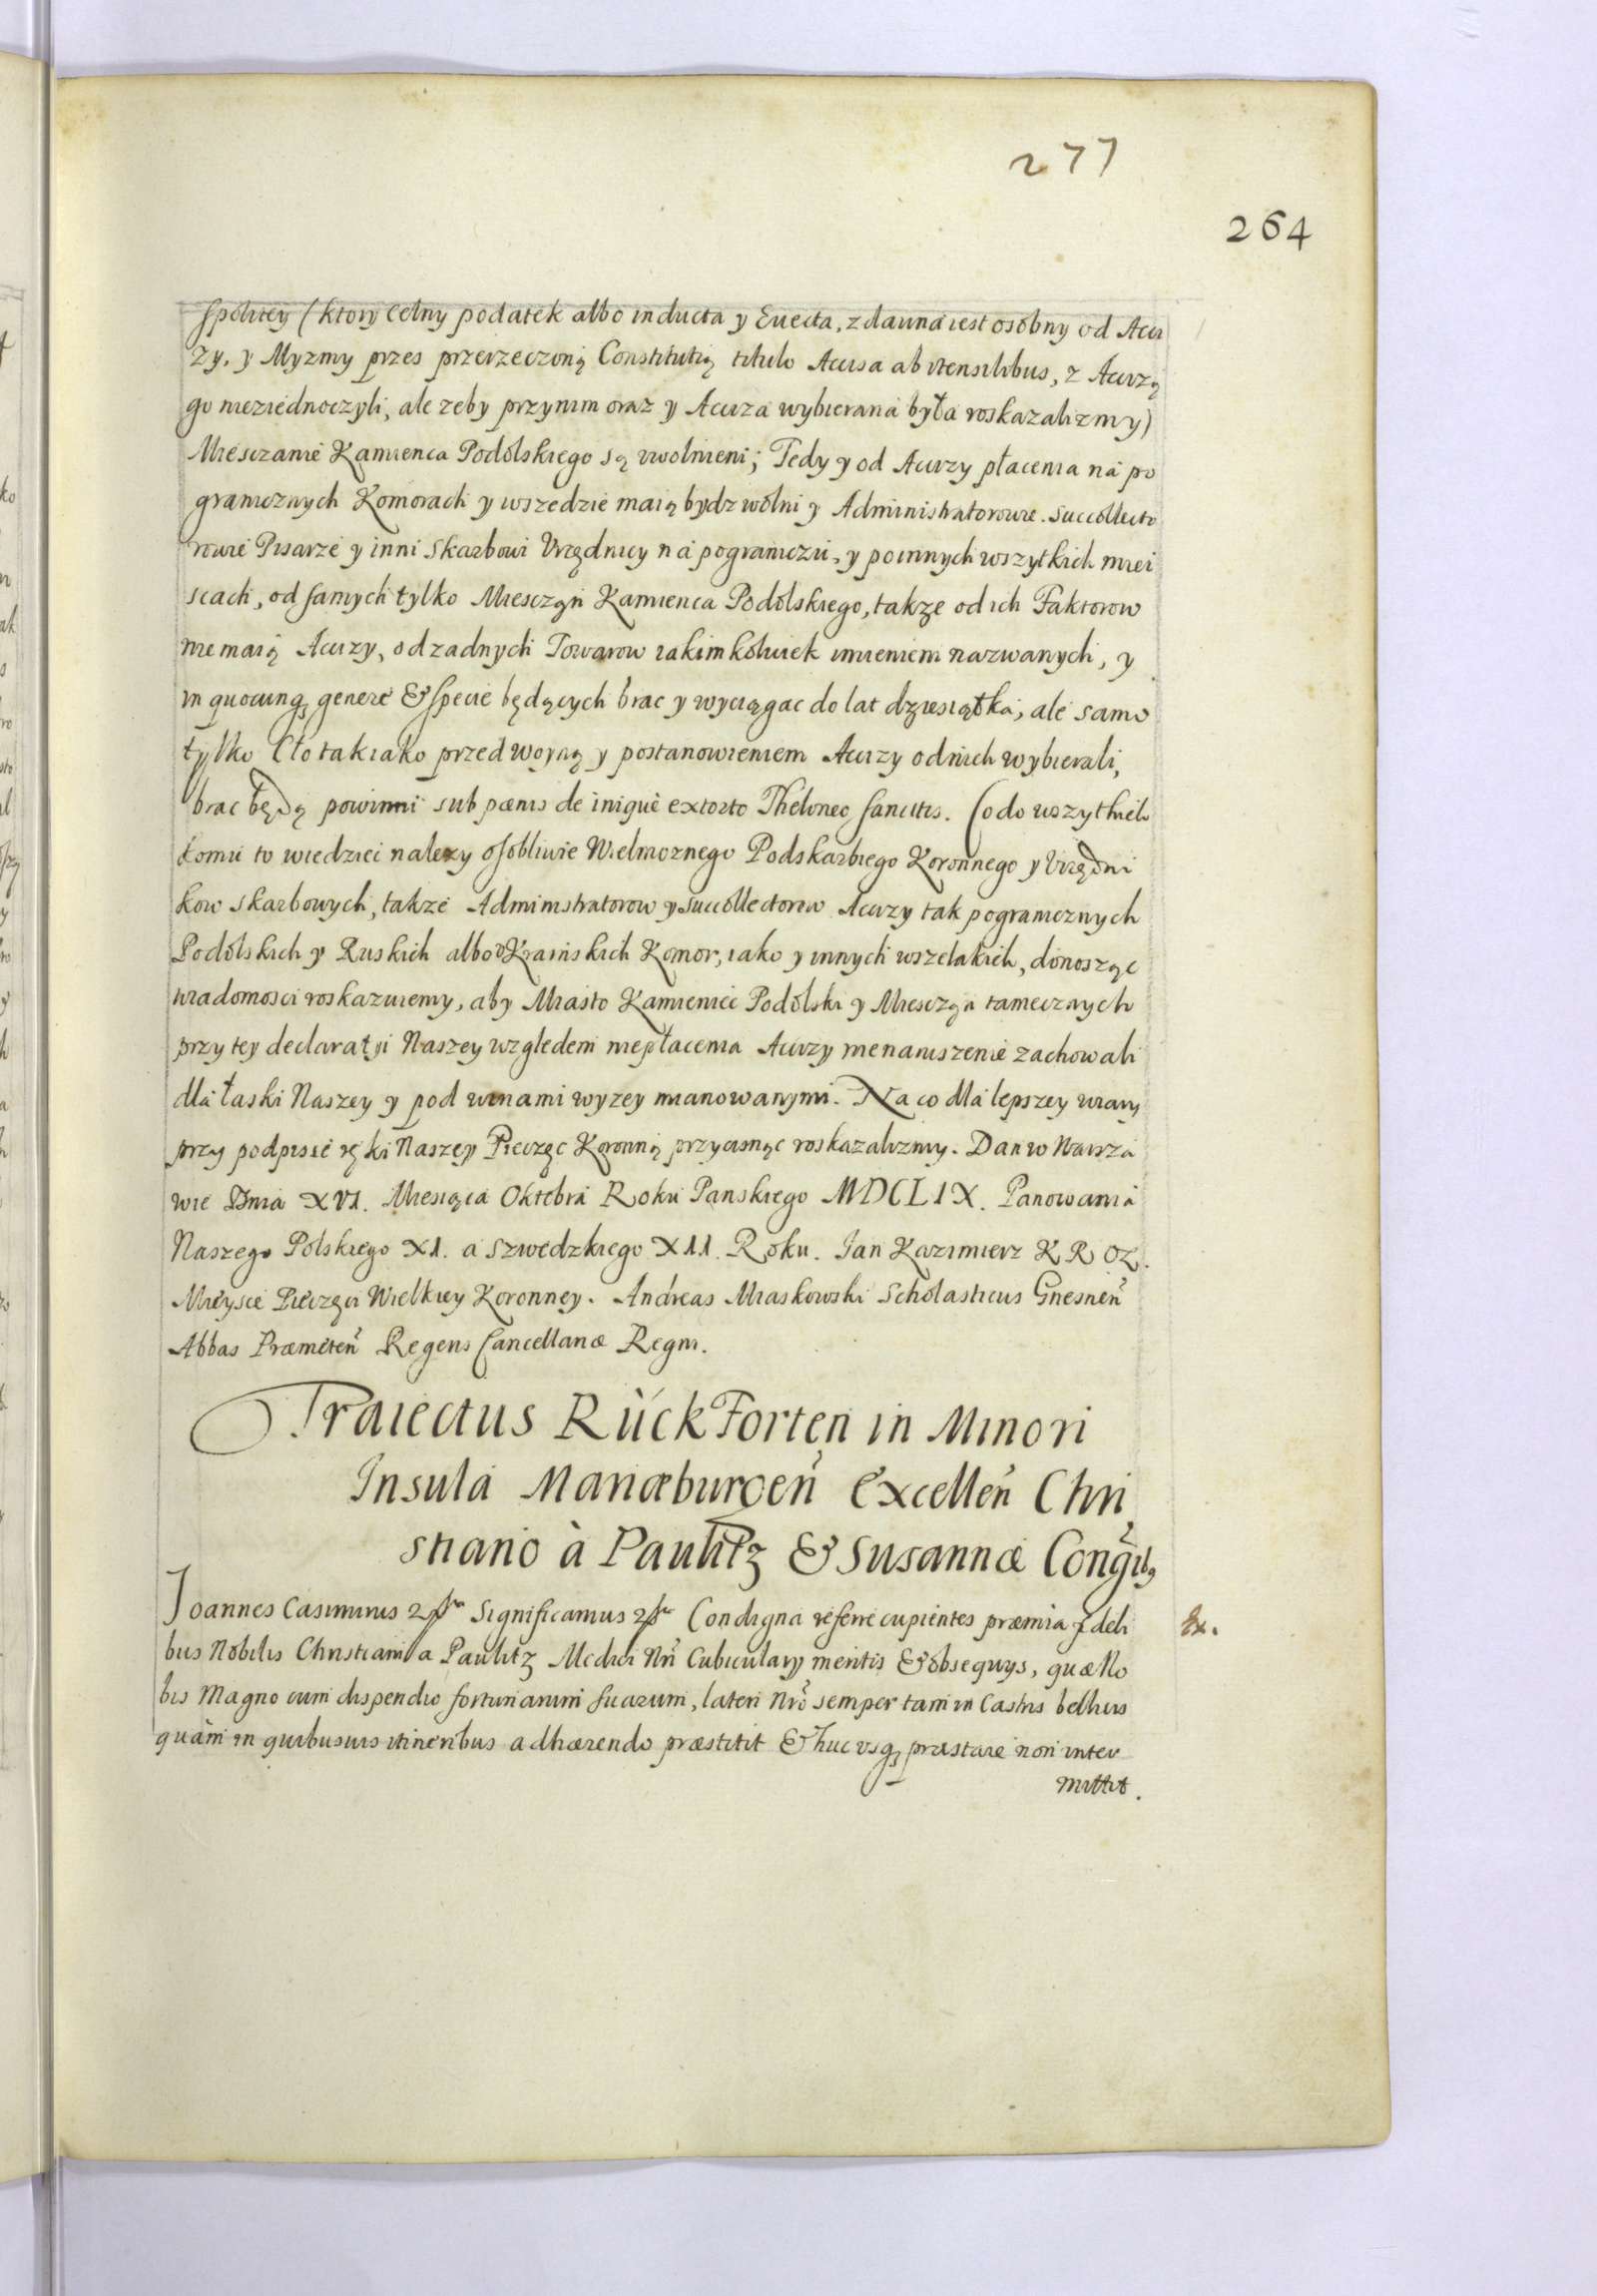 277
264
spolitey (ktory Celny podatek albo inducta y Euecta, zdawna iest osobny od Acci
zy, y Myzmy przes przerzeczoną Constitutią titulo Accisa ab vtensilibus, z Accizą
go nieziednoczyli, ale zeby przynim oraz y Acciza wybierana była roskazalizmy)
Miesczanie Kamienca Podolskiego są vwolnieni; Tedy y od Accizy płacenia na po
granicznych Komorach y wszedzie maią bydz wolni y Administratorowie. Succollecto
rowie Pisarze y inni Skarbowi Vrzędnicy na pograniczu, y poinnych wszytkich miei
scach, od samych tylko Miesczan Kamienca Podolskiego, takze od ich Faktorow
nie maią Accizy, od zadnych Towarow iakimkolwiek imieniem nazwanych, y
in quocunq; genere & specie będących brac y wyciągac do lat dziesiątka, ale samo
tylko Cło tak iako przed woyną y postanowieniem Accizy od nich wybierali,
brac będą powinni sub pœnis de iniquè extorto Theloneo sancitis. Co do wszytkich
komu to wiedziec nalezy osobliwie Wielmoznego Podskarbiego Koronnego y Vrzędni
kow skarbowych, takze Administratorow y Succollectorow Accizy tak pogranicznych
Podolskich y Ruskich albo Vkrainskich Komor, iako y innych wszelakich, donosząc
wiadomosci roskazuiemy, aby Miasto Kamieniec Podolski y Miesczan tamecznych
przy tey declaratyi Naszey względem niepłacenia Accizy nienaruszenie zachowali
dla łaski Naszey y pod winami wyzey mianowanymi. Na co dla lepszey wiary
przy podpisie ręki Naszey Pieczęc Koronną przycisnąc roskazalizmy. Dan w Warsza
wie Dnia XVI. Miesiąca Oktobra Roku Panskiego MDCLIX. Panowania
Naszego Polskiego XI. a Szwedzkiego XII. Roku. Ian Kazimierz KROL.
Mieysce Pieczęci Wielkiey Koronney. Andreas Miaskowski Scholasticus Gnesnen̄
Abbas Præmeten̄ Regens Cancellariæ Regni.
Traiectus RückForten in Minori
Insula Mariæburgen̄ Excellen̄ Chri
stiano à Paulitz & Susannæ Coniugibq
Ioannes Casimirus Significamus Condigna referre cupientes præmia fideli
bus Nobilis Christiani a Paulitz Medici Nri Cubicularij meritis & obsequys, quæ No
bis magno cum dispendio fortunarum suarum, lateri Nrō semper tam in Castris bellicis
quàm in quibusuis itineribus adhærendo præstitit & huc vsq; præstare non inter
mittit.
Ex.